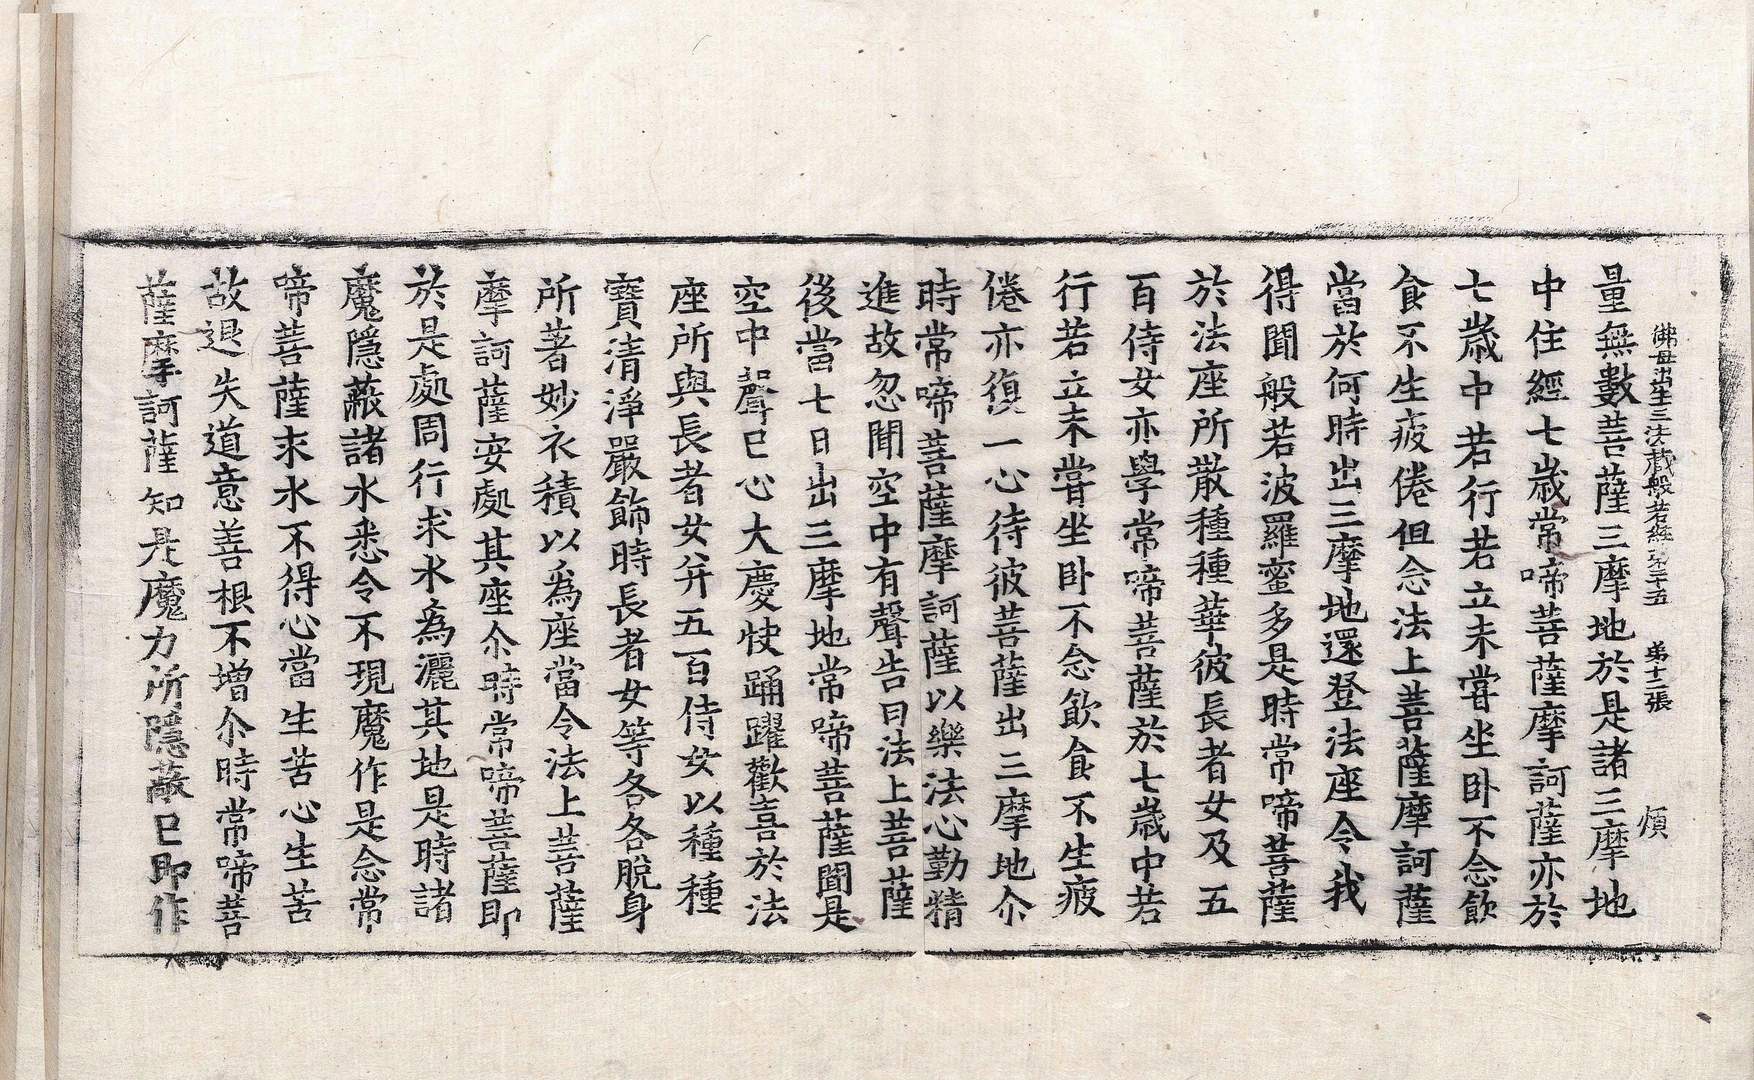 佛母出生三法藏般若經第二十五　第十二張　煩
量無數菩薩三摩地於是諸三摩地
中住經七歲常啼菩薩摩訶薩亦於
七歲中若行若立未嘗坐臥不念飲
食不生疲倦但念法上菩薩摩訶薩
當於何時出三摩地還登法座令我
得聞般若波羅蜜多是時常啼菩薩
於法座所散種種華彼長者女及五
百侍女亦學常啼菩薩於七歲中若
行若立未嘗坐臥不念飲食不生疲
倦亦復一心待彼菩薩出三摩地尒
時常啼菩薩摩訶薩以樂法心勤精
進故忽聞空中有聲告曰法上菩薩
後當七日出三摩地常啼菩薩聞是
空中聲已心大慶快踊躍歡喜於法
座所與長者女并五百侍女以種種
寶清淨嚴飾時長者女等各各脫身
所著妙衣積以為座當令法上菩薩
摩訶薩安處其座尒時常啼菩薩即
於是處周行求水為灑其地是時諸
魔隱蔽諸水悉令不現魔作是念常
啼菩薩求水不得心當生苦心生苦
故退失道意善根不增尒時常啼菩
薩摩訶薩知是魔力所隱蔽已即作